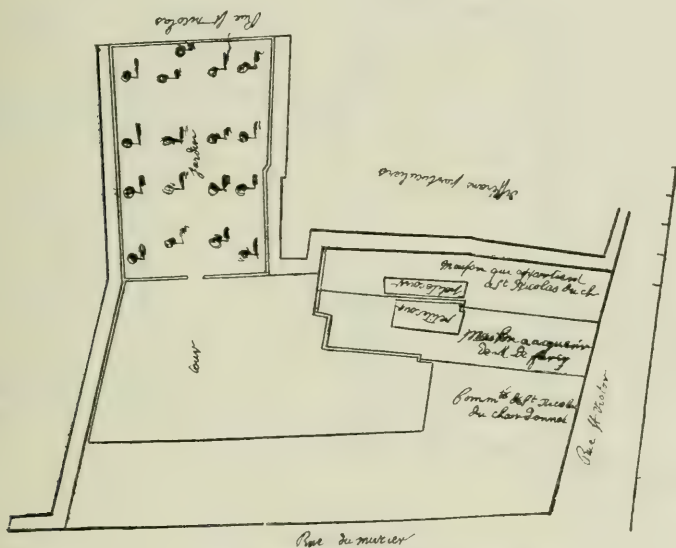 Rue St Nicolas
Jardin
differans particuliers
maison que appartient
a St Nicolas du ch
petite cour
petite cour
Maison a acquerir
de M. de
Comm.té de St Nicolas
du chardonnet
Cour
Rue St Victor
Rue du murier